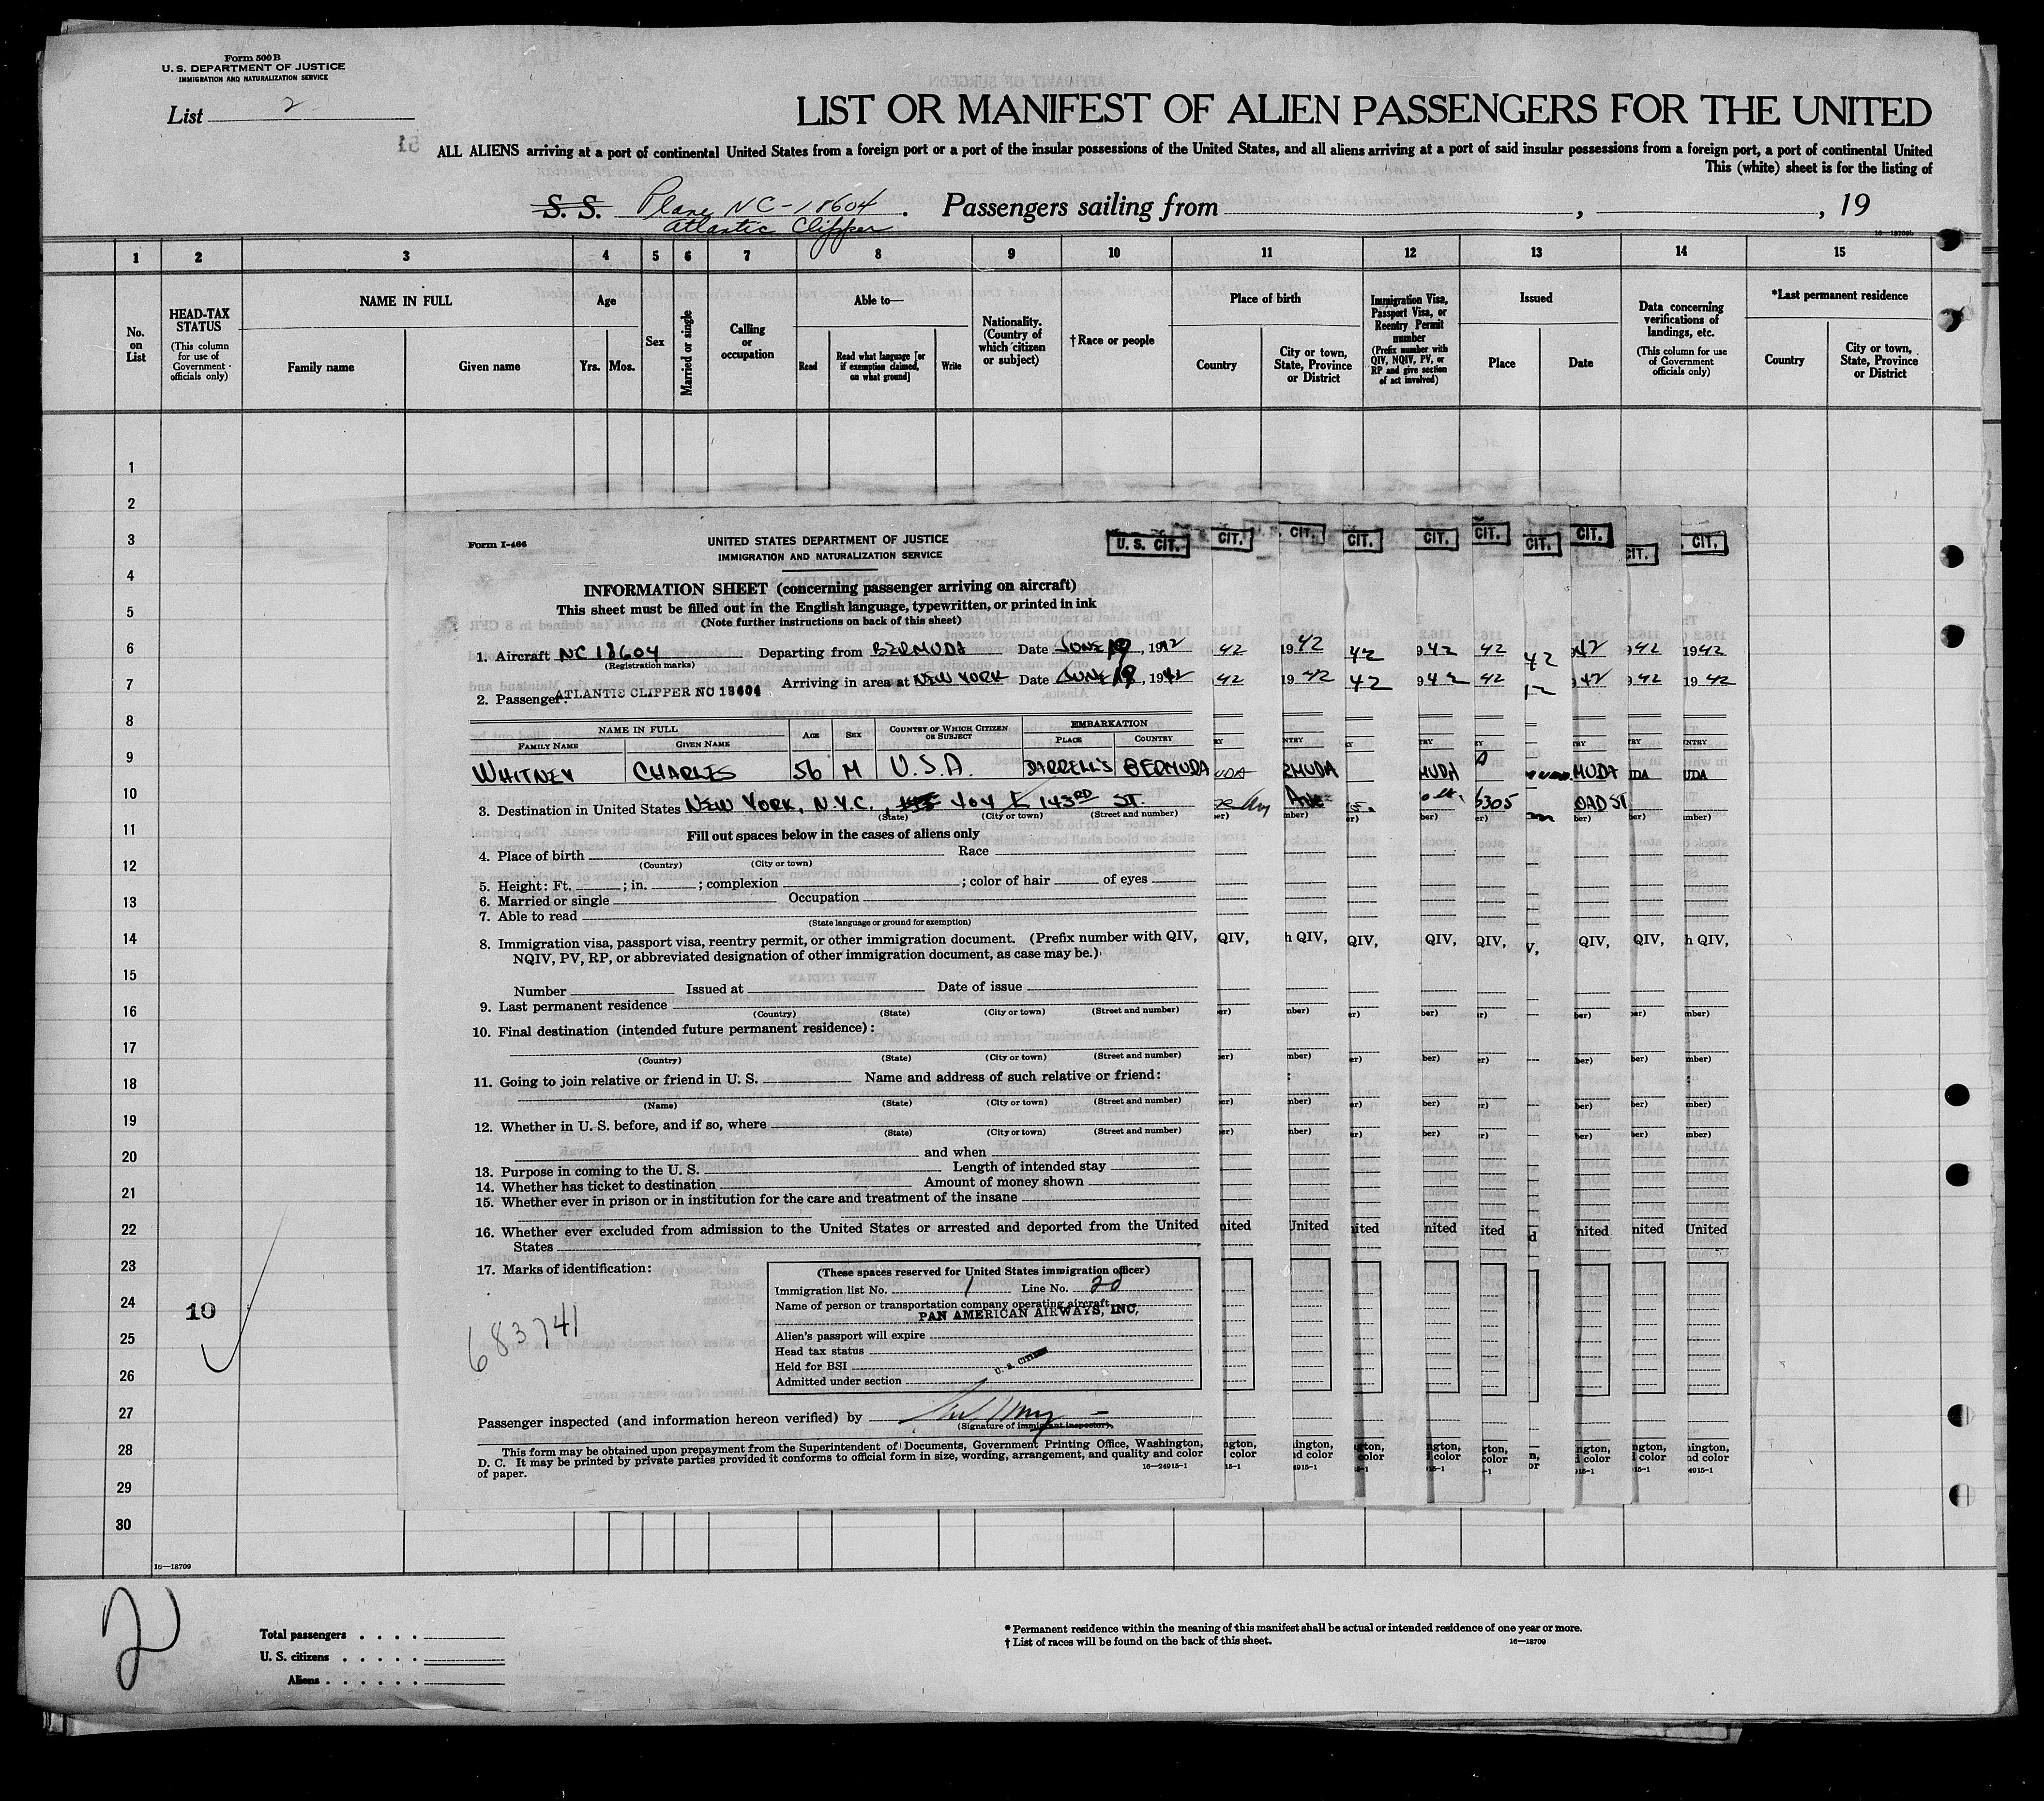 Form 500 B
U. S. DEPARTMENT OF JUSTICE
IMMIGRATION AND NATURALIZATION SERVICE
List 2
LIST OR MANIFEST OF ALIEN PASSENGERS FOR THE UNITED
ALL ALIENS arriving at a port of continental United States from a foreign port or a port of the insular possessions of the United States, and all aliens arriving at a port of said insular possessions from a foreign port, a port of continental United
This (white) sheet is for the listing of
S. S. Plane NC-18604 Passengers sailing from , , 19
Atlantic Clipper
16—18709b
1 2 3 4 5 6 7 8 9 10 11 12 13 14 15
No. on List
HEAD-TAX STATUS
(This column for use of Government officials only)
NAME IN FULL
Family name Given name
Age
Yrs. Mos.
Sex
Married or single
Calling or occupation
Able to—
Read
Read what language [or if exemption claimed, on what ground]
Write
Nationality. (Country of which citizen or subject)
†Race or people
Place of birth
Country
City or town, State, Province or District
Immigration Visa, Passport Visa, or Reentry Permit number
(Prefix number with QIV, NQIV, PV, or RP and give section of act involved)
Issued
Place Date
Data concerning verifications of landings, etc.
(This column for use of Government officials only)
*Last permanent residence
Country
City or town, State, Province or District
1
2
3
4
5
6
7
8
9
10
11
12
13
14
15
16
17
18
19
20
21
22
23
24
25
26
27
28
29
30
10
16—18709
Form I-466
UNITED STATES DEPARTMENT OF JUSTICE
IMMIGRATION AND NATURALIZATION SERVICE
U. S. CIT. CIT. CIT. CIT. CIT. CIT. CIT. CIT. CIT. CIT.
INFORMATION SHEET (concerning passenger arriving on aircraft)
This sheet must be filled out in the English language, typewritten, or printed in ink
(Note further instructions on back of this sheet)
1. Aircraft NC 18604 Departing from BERMUDA Date JUNE 19, 1942
(Registration marks)
Arriving in area at NEW YORK Date JUNE 19, 1942
2. Passenger: ATLANTIC CLIPPER NC 18604
NAME IN FULL AGE SEX COUNTRY OF WHICH CITIZEN OR SUBJECT EMBARKATION
FAMILY NAME GIVEN NAME PLACE COUNTRY
WHITNEY CHARLES 56 M U.S.A. DARRELL'S BERMUDA
3. Destination in United States NEW YORK, N.Y.C., 404 E 143RD ST.
(State) (City or town) (Street and number)
Fill out spaces below in the cases of aliens only
4. Place of birth Race
(Country) (City or town)
5. Height: Ft. ; in. ; complexion ; color of hair of eyes
6. Married or single Occupation
7. Able to read
(State language or ground for exemption)
8. Immigration visa, passport visa, reentry permit, or other immigration document. (Prefix number with QIV,
NQIV, PV, RP, or abbreviated designation of other immigration document, as case may be.)
Number Issued at Date of issue
9. Last permanent residence
(Country) (State) (City or town) (Street and number)
10. Final destination (intended future permanent residence):
(Country) (State) (City or town) (Street and number)
11. Going to join relative or friend in U. S. Name and address of such relative or friend:
(Name) (State) (City or town) (Street and number)
12. Whether in U. S. before, and if so, where
(State) (City or town) (Street and number)
and when
13. Purpose in coming to the U. S. Length of intended stay
14. Whether has ticket to destination Amount of money shown
15. Whether ever in prison or in institution for the care and treatment of the insane
16. Whether ever excluded from admission to the United States or arrested and deported from the United
States
17. Marks of identification:
683741
(These spaces reserved for United States immigration officer)
Immigration list No. 1 Line No. 20
Name of person or transportation company operating aircraft
PAN AMERICAN AIRWAYS, INC,
Alien's passport will expire
Head tax status
Held for BSI
Admitted under section
Passenger inspected (and information hereon verified) by
(Signature of immigrant inspector)
This form may be obtained upon prepayment from the Superintendent of Documents, Government Printing Office, Washington,
D. C. It may be printed by private parties provided it conforms to official form in size, wording, arrangement, and quality and color
of paper.
16—24915-1
2
Total passengers . . . .
U. S. citizens . . . . .
Aliens . . . . . .
* Permanent residence within the meaning of this manifest shall be actual or intended residence of one year or more.
† List of races will be found on the back of this sheet.
16—18709